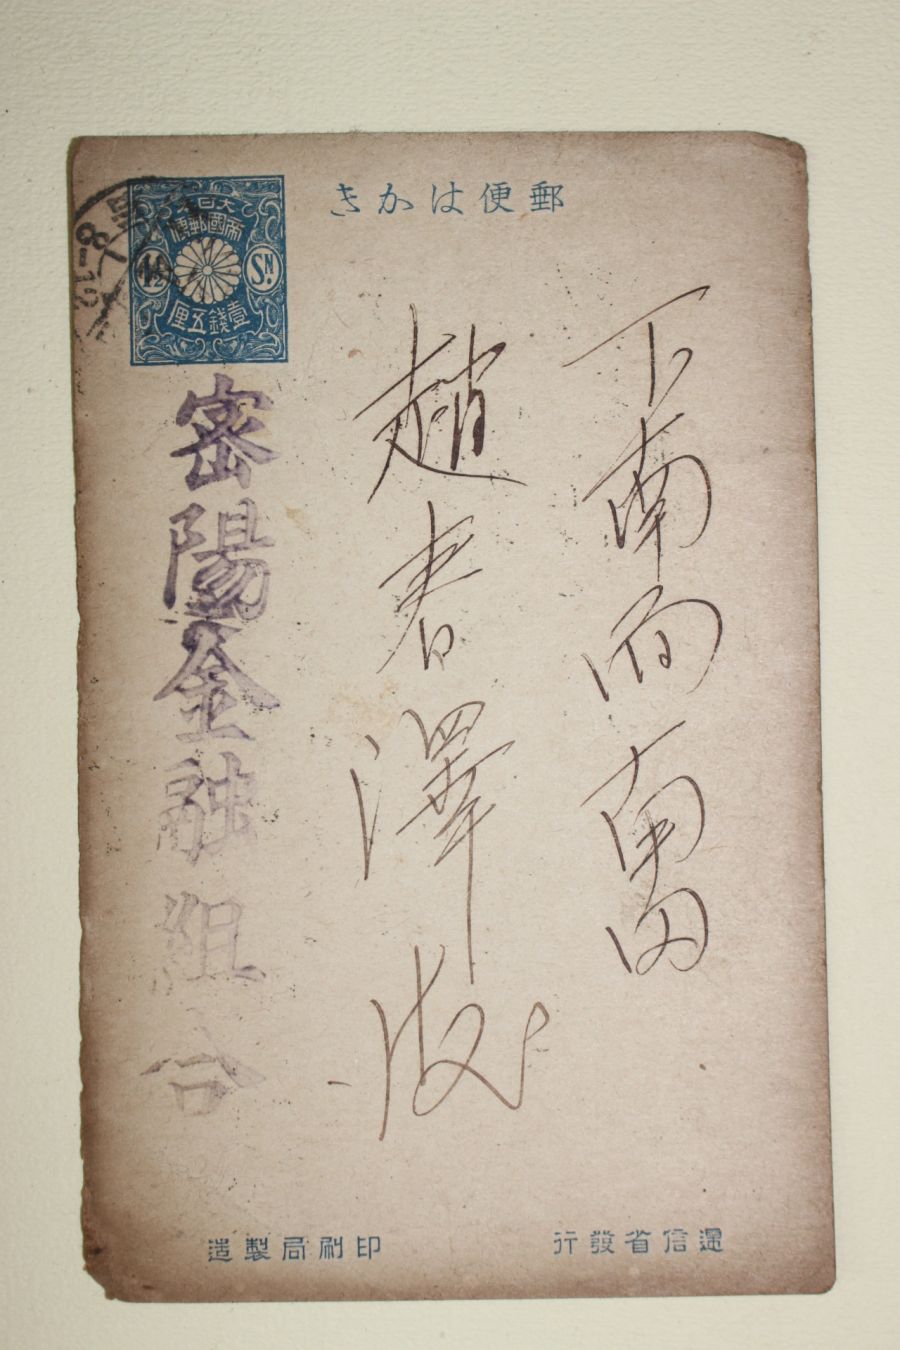 郵便はかき
大日本
帝國郵便
1½ SN.
壹錢五厘
下南面南
趙春澤
密陽金融組合
逓信省發行
印刷局製造